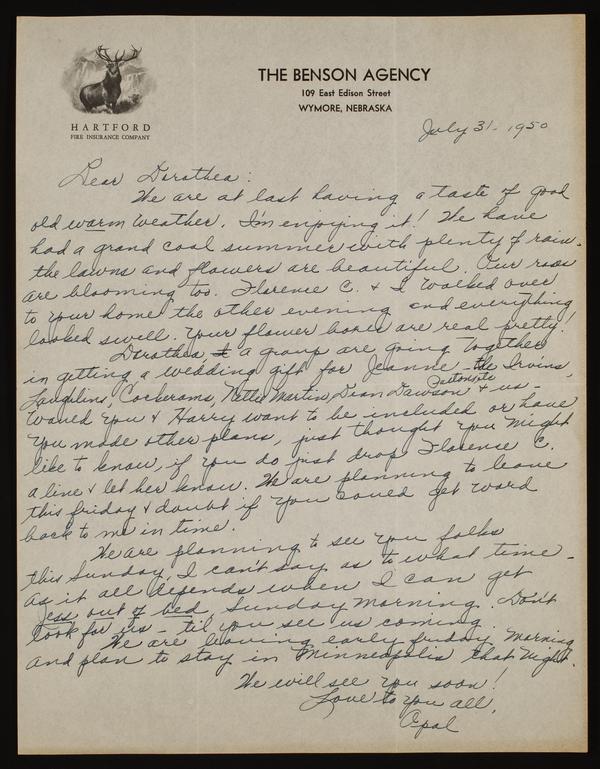 THE BENSON AGENCY
109 East Edison Street
WYMORE, NEBRASKA
HARTFORD
FIRE INSURANCE COMPANY
July 31 - 1950
Dear Dorathea:
We are at last having a taste of good
old warm weather. I'm enjoying it! We have
had a grand cool summer with plenty of rain -
the lawns and flowers are beautiful. Our roses
are blooming, too. Florence C. & I walked over
to your home the other evening and everything
looked swell. Your flower boxes are real pretty!
Dorathea, a group are going together
in getting a wedding gift for Jeanne - the Irvins,
Laughlins, Corkerams, Netta Martin, Dean Dawson & us -
Would you & Harry want to be included or have
you made other plans, just thought you might
like to know, if you do just drop Florence C.
a line & let her know. We are planning to leave
this friday & doubt if you could get word
back to me in time.
We are planning to see you folks
this Sunday, I can't say as to what time -
as it all depends when I can get
Jess out of bed, Sunday morning. Don't
look for us - 'til you see us coming.
We are leaving early friday morning
and plan to stay in Minneapolis that night.
We will see you soon!
Love to you all,
Opal